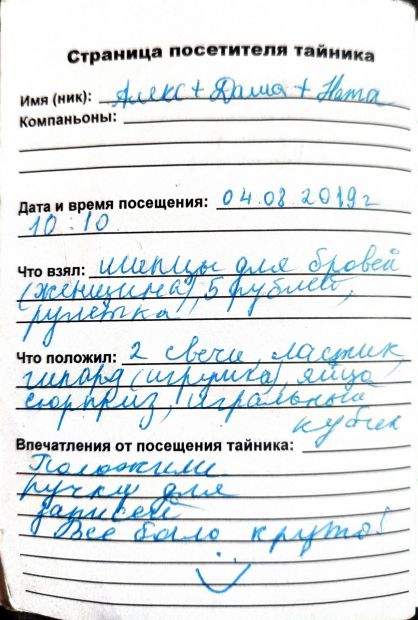 Страница посетителя тайника
Имя (ник): Алекс + Даша + Ната
Компаньоны:
Дата и время посещения: 04.08 2019 г
10:10
Что взял: щипцы для бровей
(женщина), 5 рублей,
рулетка
Что положил: 2 свечи, ластик,
(игрушка), яйцо
сюрприз, игральный
кубик
Впечатления от посещения тайника:
Положили
ручку для
записей
Всё было круто!